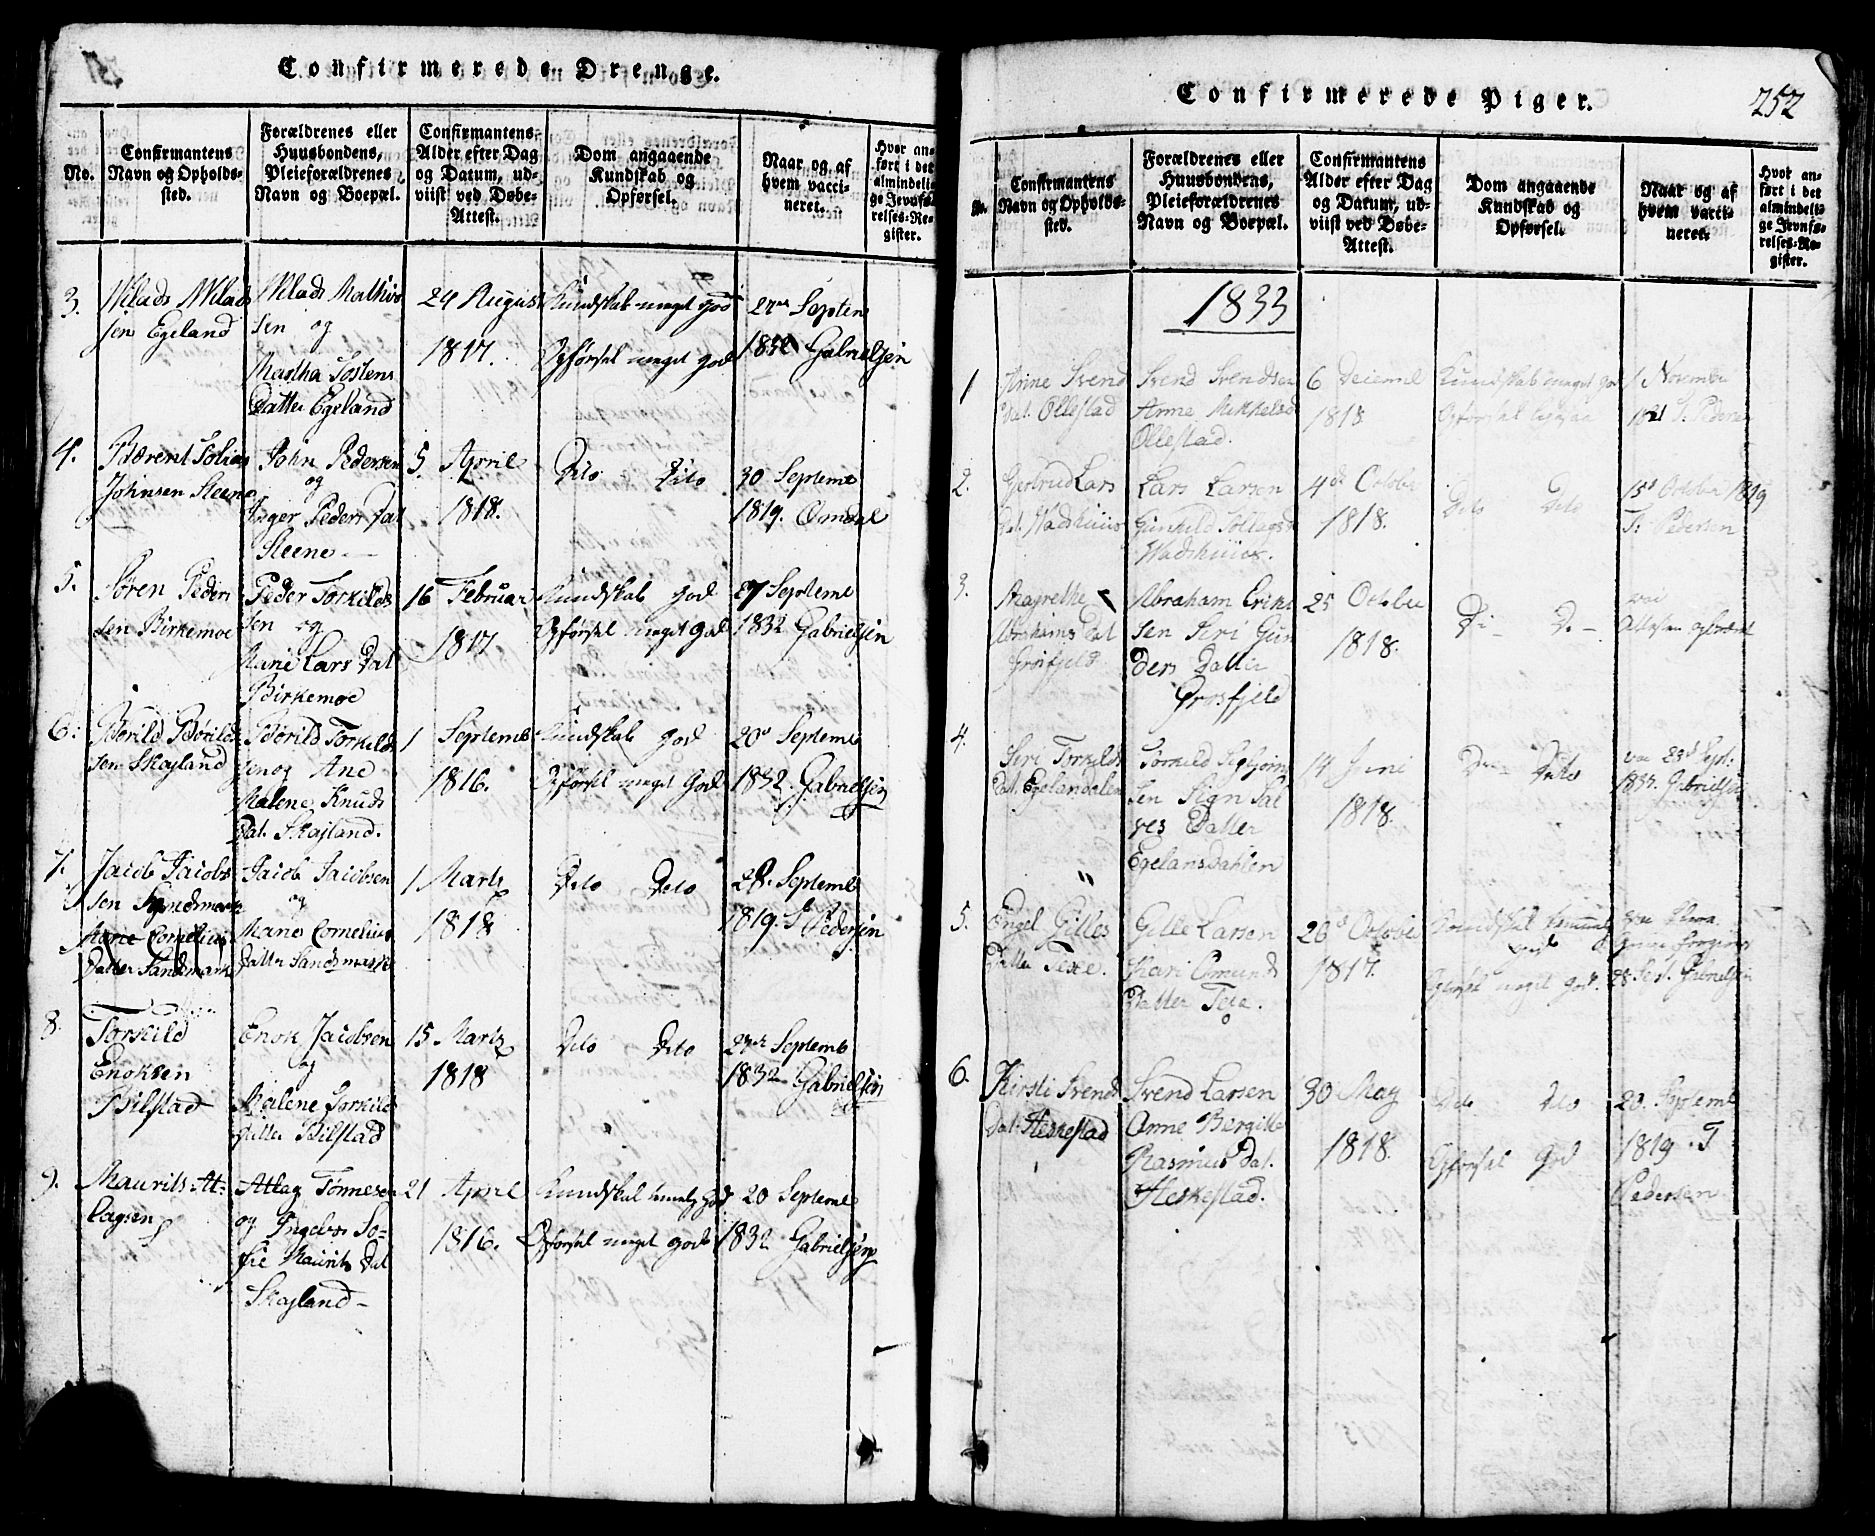 Confirmerede Drenge.
No.
Confirmantens
Navn og Opholds-
sted.
Forældrenes eller
Huusbondens,
Pleieforældrenes
Navn og Boepæl.
Confirmantens
Alder efter Dag
og Datum, ud-
viist ved Døbe-
Attest.
Dom angaaende
Kundskab og
Opførsel.
Naar og af
hvem vacci-
neret.
Hvor an-
ført i det
almindeli-
ge Jevnfø-
relses-Re-
gister.
3.
sen Egeland
sen og
Martha
Datter Egeland
24 August
1817.
Kundskab meget god
Opførsel meget god
Septem
Gabrielsen
4.
Johnsen Steene
John Pedersen
og
Inger Peders Dat
Steene
5. April
1818.
Dito Dito
30 Septemb
1819. Omdal
5.
Søren Peder
sen Birkemoe
Peder Torkilds
sen og
Marie Lars Dat
Birkemoe
16 Februar
1817
Kundskab god
Opførsel meget god
27 Septemb
1832 Gabrielsen
6.
Børild Børilds
sen Skojland
Børild Torkild
sen og Ane
Malene Knuds
Dat. Skojland.
1 Septemb
1816.
Kundskab god
Opførsel meget god
20 Septemb
1832. Gabrielsen
7.
Jacob Jacob
sen Sandsmark
Marie Cornelius
Datter Sandsmark
Jacob Jacobsen
og
Marie Cornelius
Datter Sandsmark
1 Marts
1818
Dito Dito
28. Septemb
1819. T Pedersen
8.
Torkild
Enoksen
Bilstad
Enok Jacobsen
og
Malene Torkild
Datter Bilstad
15 Marts
1818
Dito Dito
Septemb
1832 Gabrielsen
9.
Maurits At-
lagsen
Atlag Tønnesen
og Ingebor So-
fie Maurits Dat
Skojland
21 April
1816.
Kundskab god
Opførsel meget god
20 Septemb
1832 Gabrielsen
Confirmerede Piger.
252
No.
Confirmantens
Navn og Opholds-
sted.
Forældrenes eller
Huusbondens,
Pleieforældrenes
Navn og Boepæl.
Confirmantens
Alder efter Dag
og Datum, ud-
viist ved Døbe-
Attest.
Dom angaaende
Kundskab og
Opførsel.
Naar og af
hvem vacci-
neret.
Hvor an-
ført i det
almindeli-
ge Jevnfø-
relses-Re-
gister.
1833
1
Svend
Dat. Ollestad
Svend Svendsen
Anne Mikkelsd
Ollestad.
6
1818
Kundskab meget god
Opførsel
1 Novembr
1821 T. Pedersen
2.
Gjertrud Lars
Dat. Vadshuus
Lars Larsen
Gunhild
Vadshuus.
4de October
1818.
Dito Dito
15d October 1819
T. Pedersen
3.
Magrethe
Abrahams Dat
Grosfjeld
Abraham Erik
sen Seri Gun
ders Datter
Grosfjeld
25 October
1818.
4.
Seri Torkilds
Dat. Egelandalen
Torkild Sigbjørn
sen Sign Sal
ves Datter
Egelansdahlen
14 Juni
1818.
Dito
23d Sept.
1833. Gabrielsen
5.
Engel Gilles
Datter Texe.
Gille Larsen
Kari Omund
Datter Texe.
26d October
1817.
Kundskab
god
Opførsel meget god.
28 Sept. Gabrielsen
6.
Kirsti Svend
Dat. Heskestad
Svend Larsen
Anne Bergitte
Rasmus Dat.
Heskestad.
30 May
1818.
Dito Dito
Opførsel God
20. Septemb
1819. T
Pedersen